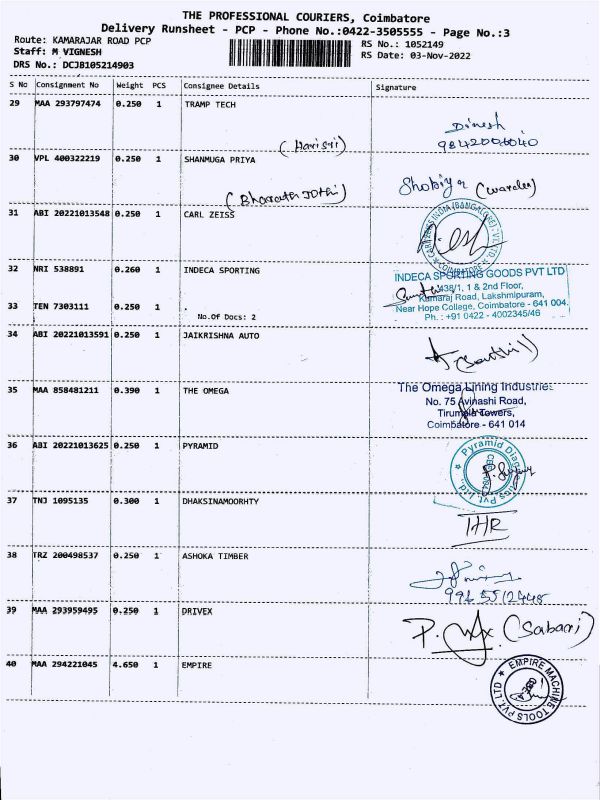 THE PROFESSIONAL COURIERS, Coimbatore
Delivery Runsheet - PCP - Phone No.:0422-3505555 - Page No.:3
Route: KAMARAJAR ROAD PCP
RS No.: 1052149
Staff: M VIGNESH
RS Date: 03-Nov-2022
DRS No.: DCJB105214903
S No Consignment No Weight PCS Consignee Details Signature
29 MAA 293797474 0.250 1 TRAMP TECH
Dinesh
(Harisri)
30 VPL 400322219 0.250 1 SHANMUGA PRIYA
(Bharath Jothi)
31 ABI 20221013548 0.250 1 CARL ZEISS
COIMBATORE
32 NRI 538891 0.260 1 INDECA SPORTING
INDECA SPORTING GOODS PVT LTD
438/1, 1 & 2nd Floor,
Kamaraj Road, Lakshmipuram,
Near Hope College, Coimbatore - 641 004.
Ph. : +91 0422 - 4002345/46
33 TEN 7303111 0.250 1
No.Of Docs: 2
34 ABI 20221013591 0.250 1 JAIKRISHNA AUTO
35 MAA 858481211 0.390 1 THE OMEGA
The Omega Lining Industries
No. 75 Avinashi Road,
Tirumala Towers,
Coimbatore - 641 014
36 ABI 20221013625 0.250 1 PYRAMID
37 TNJ 1095135 0.300 1 DHAKSINAMOORHTY
38 TRZ 200498537 0.250 1 ASHOKA TIMBER
39 MAA 293959495 0.250 1 DRIVEX
(Sabari)
40 MAA 294221045 4.650 1 EMPIRE
EMPIRE MACHINE TOOLS PVT. LTD